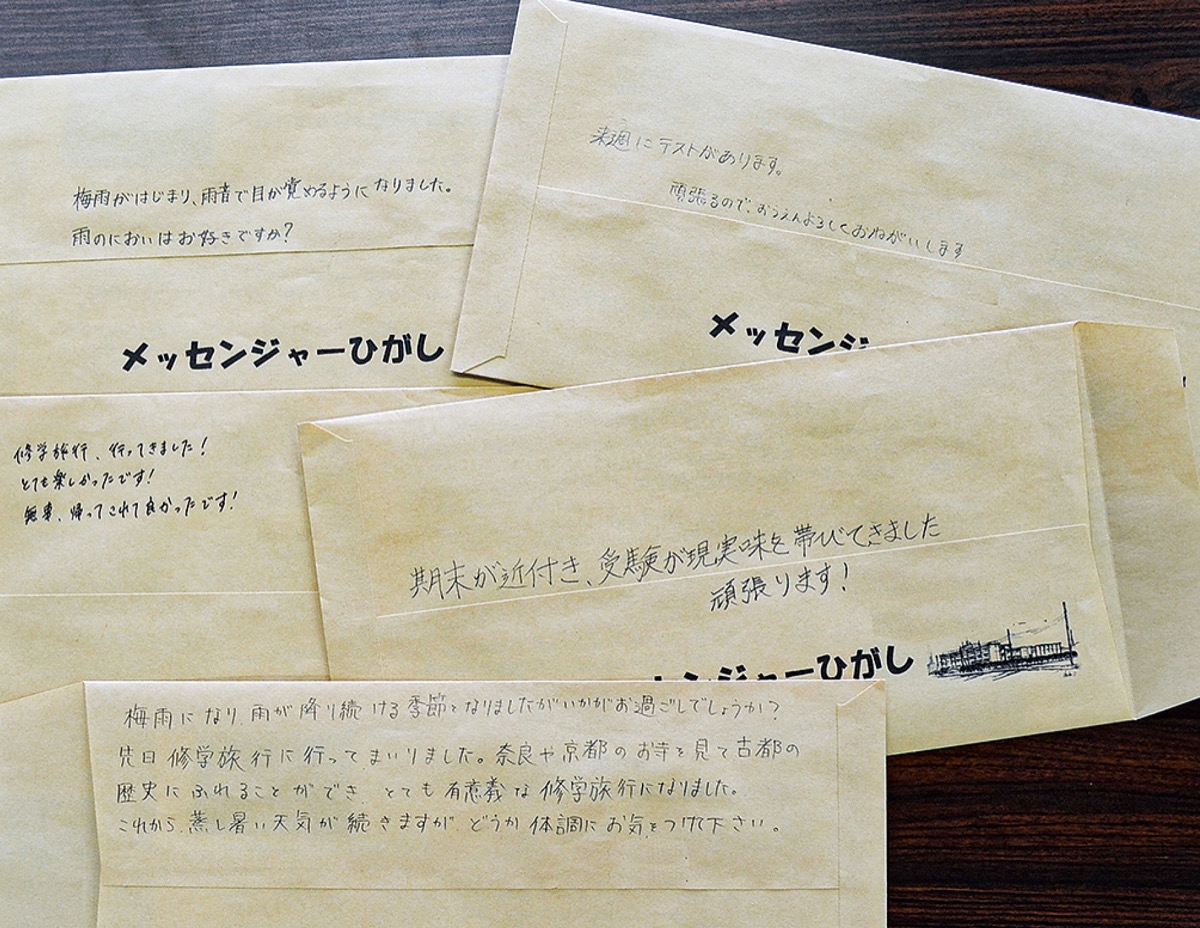 梅雨がはじまり、雨音で目が覚めるようになりました。
雨のにおいはお好きですか?
メッセンジャーひがし
来週にテストがあります。
頑張るので、おうえんよろしくおねがいします
メッセンジ
修学旅行、行ってきました!
とても楽しかったです!
無事、帰ってこれて良かったです!
期末が近付き、受験が現実味を帯びてきました
頑張ります!
センジャーひがし
梅雨になり、雨が降り続ける季節となりましたがいかがお過ごしでしょうか?
先日修学旅行に行ってまいりました。奈良や京都のお寺を見て古都の
歴史にふれることができ、とても有意義な修学旅行になりました。
これから、蒸し暑い天気が続きますが、どうか体調にお気をつけて下さい。